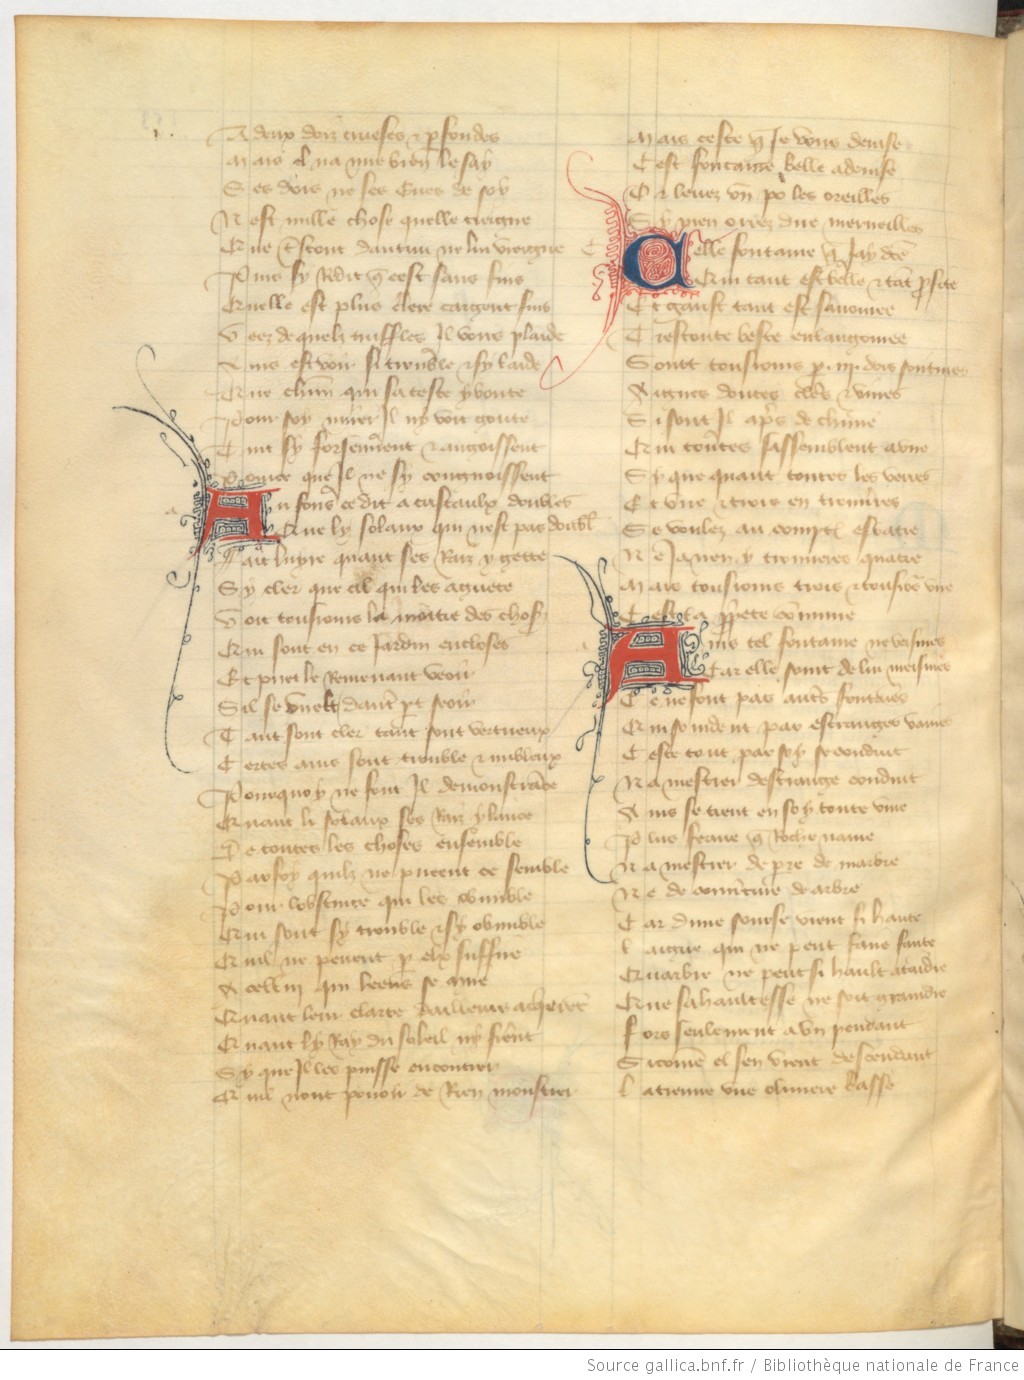 A deux doiz crueses et parfondes
Mais il na mie bien le say
Ses dois ne ses eues de soy
Nest nulle chose quelle tiengne
Que trestout dautrui ne lui viengne
Puis sy redit que cest sans fins
Quelle est plus clere cargent fins
Veez de quelz truffles Il vous plaide
Ains est voir si trouble et sy laide
Que chascun qui sa teste y boute
Pour soy mirer Il ny voit goute
Tuit sy forsennent et angoissent
Pource que Il ne sy congnoissent
Au fons ce dit a cristaulx doubles
Que ly solaux qui nest pas doubles
Fait luyre quant ses Raiz y gette
Sy cler que cil qui les aguete
Voit tousiours la moitie des choses
Qui sont en ce Jardin encloses
Et puet le Remenant veoir
Sil se vuelt dautre part seoir
Tant sont cler tant sont vertueux
Certes ains sont trouble et nubleux
Pourquoy ne font Il demonstrance
Quant li solaux ses Raiz y lance
De toutes les choses ensemble
Par foy quilz ne pueent ce semble
Pour lobscurte qui les obnuble
Qui sont sy trouble et sy obnuble
Quil ne peuent par elx suffire
A cellui qui leens se mire
Quant leur clarte dailleurs acquierent
Quant ly Ray du soleil ny fierent
Sy que Il les puisse encontrer
Quil nont pouoir de Rien monstrer
Mais ceste que Je vous deuise
Cest fontaine belle a deuise
Or leuez un po les oreilles
Sy men orrez dire merueilles
Celle fontaine que Jay dite
Qui tant est belle et tant proufite
Et garist tant est sauouree
Trestoute beste enlangouree
Sourt tousiours par .iii. dois soutiues
Aigues doutes cleres et viues
Si sont Il apres de chascune
Qui toutes sassemblent a une
Sy que quant toutes les verres
Et vne et trois en trouueres
Se voulez au compter esbatre
Ne Ja nen y trouueres quatre
Mais tousiours trois et tousiours vne
Cest la proprete commune
Ains tel fontaine ne veismes
Car elle sourt de lui meismes
Ce ne font pas autres fontaines
Qui sourdent par estranges vaines
Ceste tout par soy se conduit
Na mestier destrange conduit
Ains se tient en soy toute viue
Plus ferme que Roche naiue
Na mestier de pierre de marbre
Ne de couuerture de arbre
Car dune sourse vient si haute
Laigue qui ne peut faire faute
Quarbre ne peut si hault ataidre
Que sa haultesse ne soit graindre
Fors seulement a Vn pendant
Sicomme el sen vient descendant
La treuue vne oliuiere basse
Source gallica.bnf.fr / Bibliothèque nationale de France